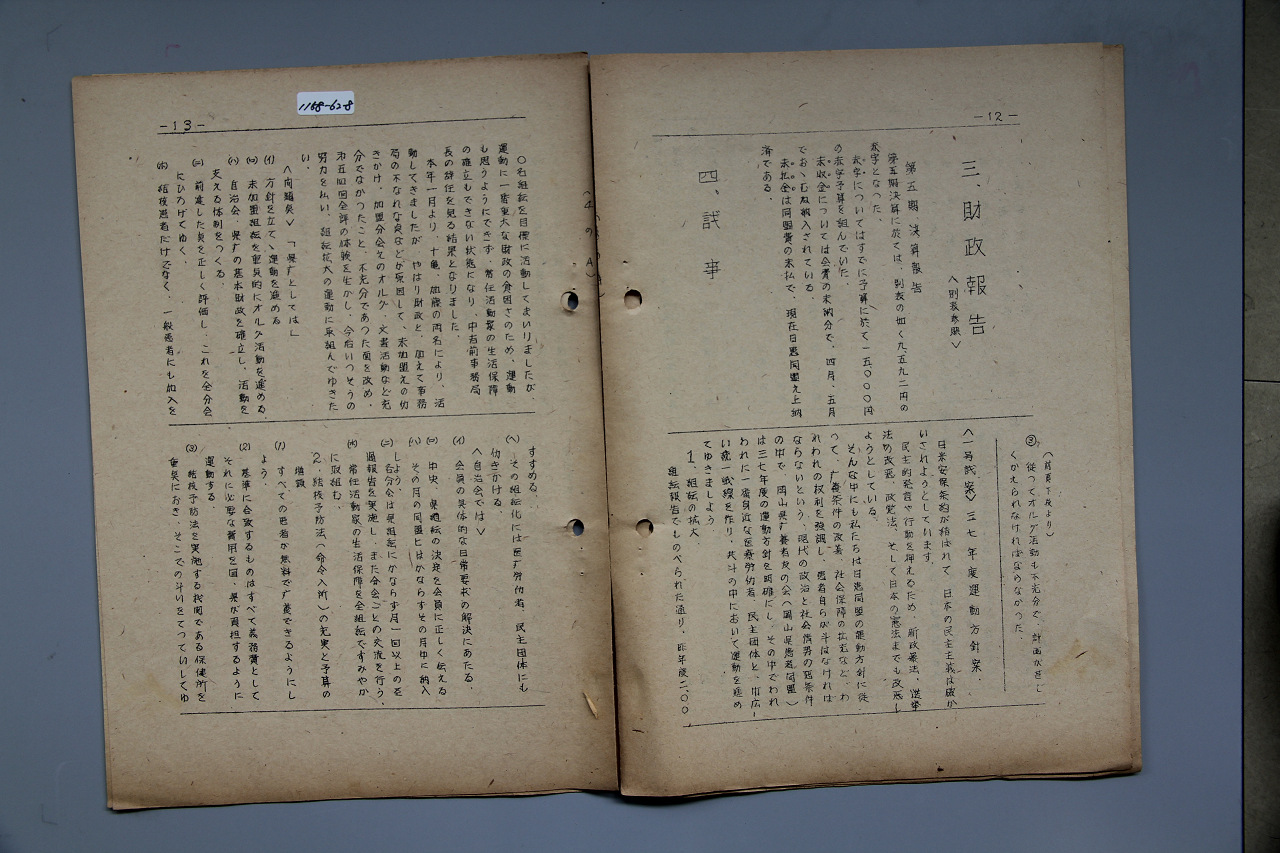 -12-
三、財政報告
＜別表参照＞
第五期決算報告
第五期決算に於ては、別表の如く九五九二円の
赤字となった。
赤字についてはすでに予算に於て一五〇〇〇円
の赤字予算を組んでいた。
未収金については会費の未納分で、四月、五月
でおゝむね納入されている。
未払金は同盟費の未払で、現在日患同盟え上納
済である。
四、議事
＜前頁下段より＞
③ 従つてオルグ活動も不充分で、計画が甚し
くかえられなければならなかつた。
＜一号議案＞三七年度運動方針案
日米安保条約が結ばれて、日本の民主主義は破か
いされようとしています。
民主的発言や行動を押えるため、新政暴法、選挙
法の改悪、政党法、そして日本の憲法までも改悪し
ようとしている。
そんな中にも私たちは日患同盟の運動方針に従
って、療養条件の改善、社会保障の拡充など、わ
れわれの权利を強調し、患者自らが斗はなければ
ならないという、現代の政治と社会情勢の悪条件
の中で、岡山県療養者友の会＜岡山県患者同盟＞
は三七年度の運動方針を明確にし、その中でわれ
われに一番身近な医療労仂者、民主団体と、巾広
い統一戦線を作り、共斗の中において運動を進め
てゆきましよう。
1. 組织の拡大、
組织報告でものべられた通り、昨年度二、〇〇
-13-
1168-62-8
〇名組织を目標に活動してまいりましたが、
運動に一番重大な財政の貧困さのため、運動
も思うようにできず、常任活動家の生活保障
の確立もできない状態になり、中吉前事務局
長の辞任を見る結果となりました。
本年一月より、十亀、加藤の両名により、活
動してきましたが、やはり財政と、加えて事務
局の不なれな点などが原因して、未加盟えの仂
きかけ、加盟分会えのオルグ、文書活動など充
分でなかつたこと、不充分であつた面を改め、
才五回回全評の体験を生かし、今后いつそうの
努力を払い、組织拡大の運動に取組んでゆきた
い。
＜問題矣＞「県庁としては」
(イ) 方針を立てゝ運動を進める
(ロ) 未加盟組织を重矣的にオルグ活動を進める、
(ハ) 自治会、県庁の基本財政を確立し、活動を
支える体制をつくる。
(ニ) 前進した矣を正しく評価し、これを全分会
にひろげてゆく、
(ホ) 結核患者だけでなく、一般患者にも加入を
すすめる、
(ヘ) その組织化には医療労仂者、民主団体にも
仂きかける、
＜自治会では＞
(イ) 会員の具体的な日常要求の解決にあたる、
(ロ) 中央、県組织の決定を会員に正しく伝える
(ハ) その月の同盟ヒはかならずその月中に納入
しよう、
(ニ) 各分会は県組织にかならず月一回以上のモ
通報告を実施し、また分会ごとの交流を行う、
(ホ) 常任活動家の生活保障を全組织ですみやか
に取組む、
2. 結核予防法＜命令入所＞の充実と予算の
増額
(1) すべての患者が無料で療養できるようにし
よう、
(2) 基準に合致するものはすべて義務費として
それに必要な費用を国、県が負担するように
運動する、
(3) 結核予防法を実施する機関である保健所を
重矣におき、そこでの斗いをてつていしてゆ